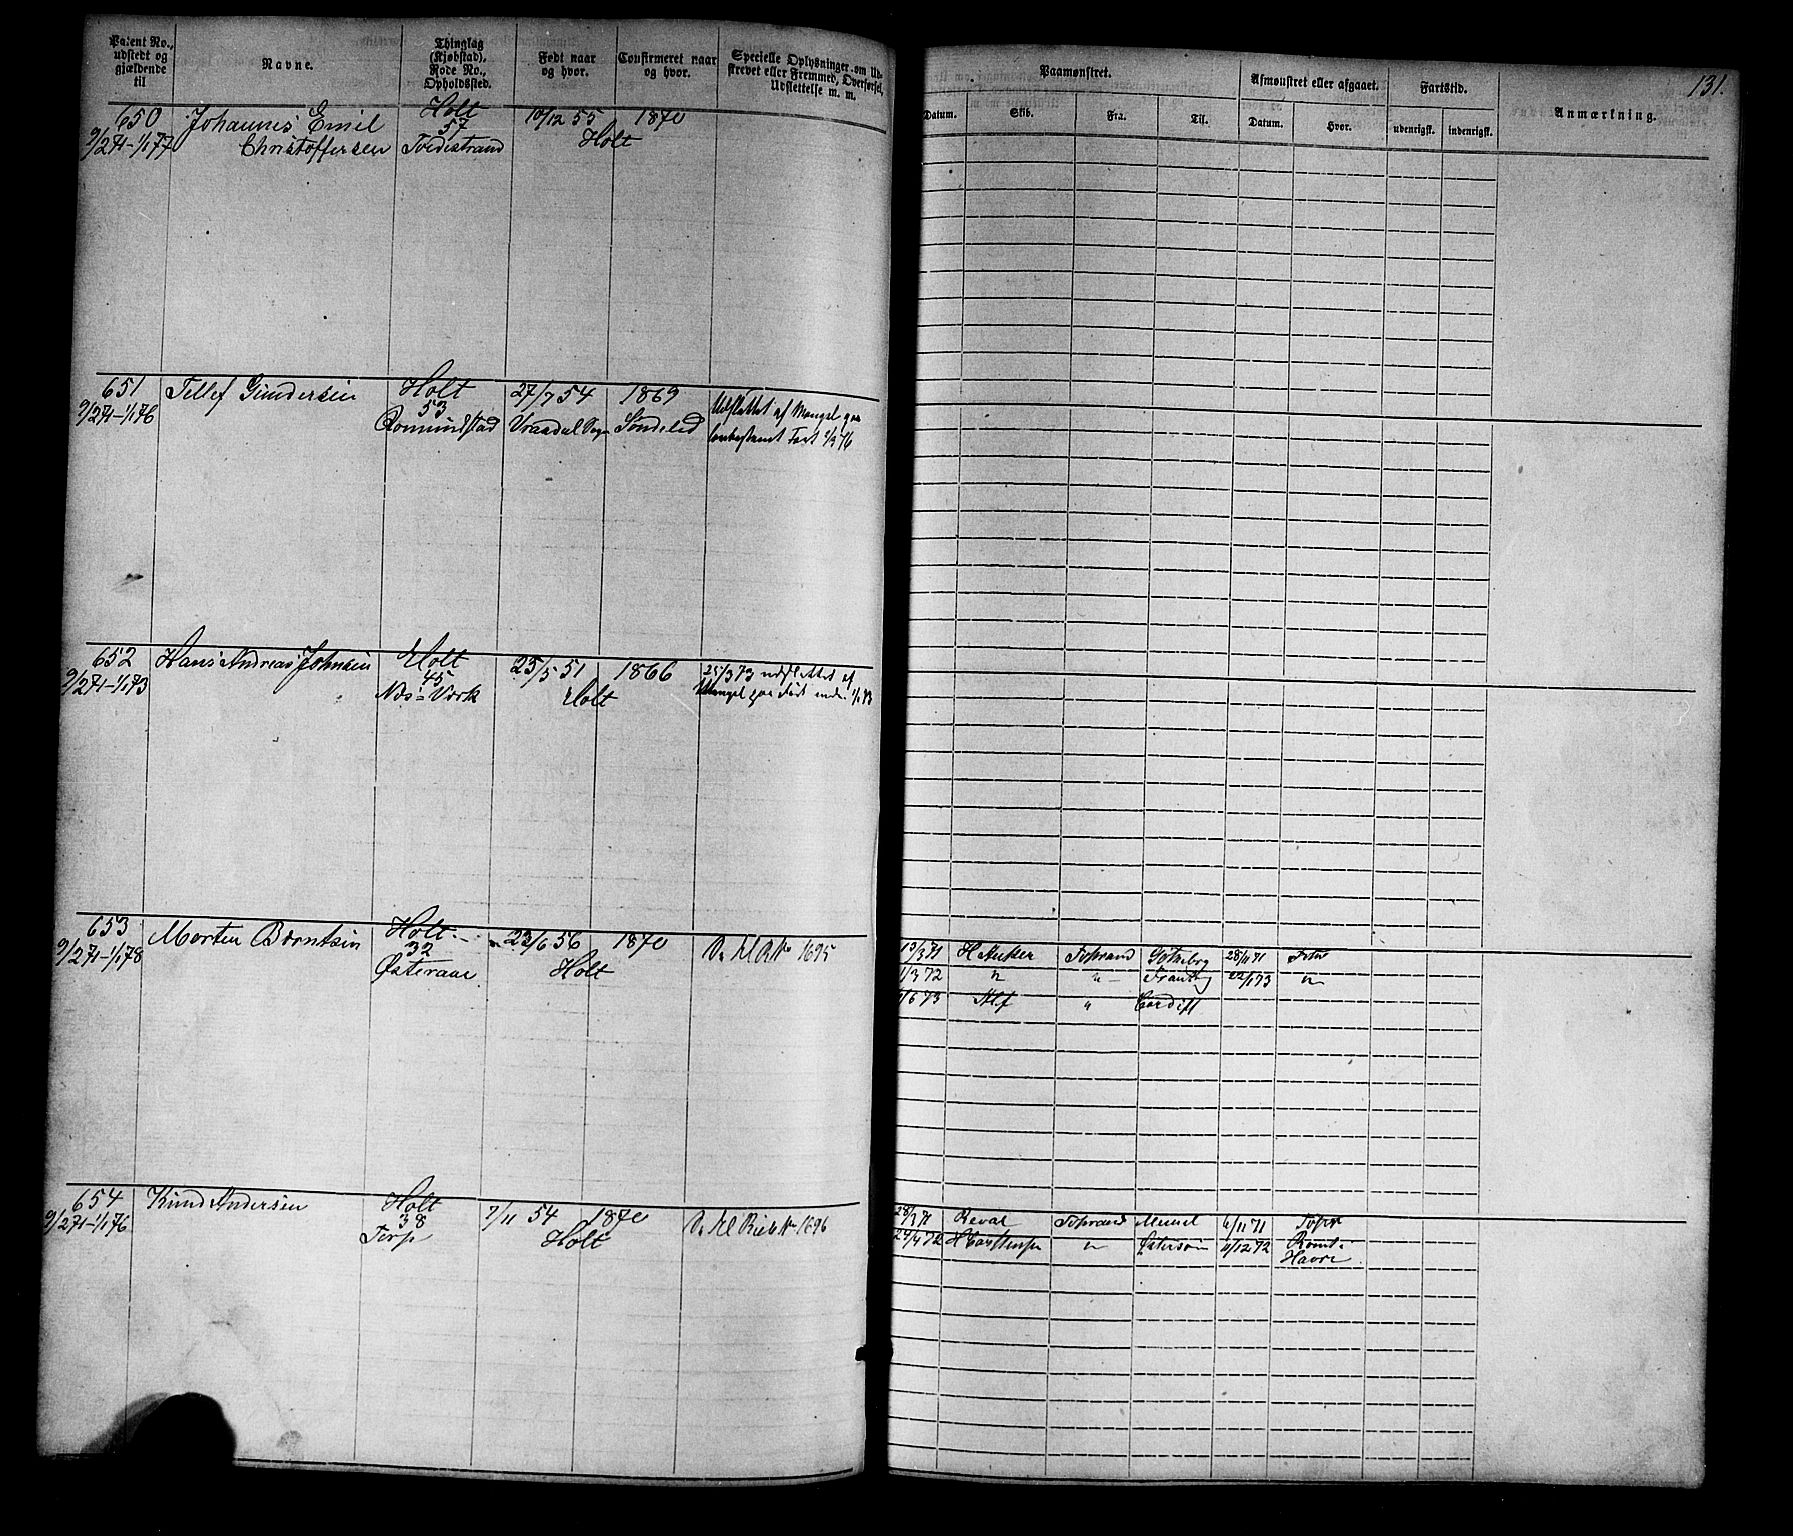 Patent No., udstedt og gjældende til
Navne.
Thinglag (Kjøbstad), Rode No., Opholdssted.
Født naar og hvor.
Confirmeret naar og hvor.
Specielle Oplysninger om Udskrevet eller Fremmed, Overførsel, Udslettelse m. m.
Paamønstret.
Afmønstret eller afgaaet.
Fartstid.
Anmærkning.
131.
Datum.
Skib.
Fra.
Til.
Datum.
Hvor.
udenrigsk.
indenrigsk.
650 Johannes Emil Holt 10/12 55 1870
9/2 71-1/1 77 Christoffersen 57 Holt
Tvedestrand
651 Tellef Gundersen Holt 27/7 54 1869 Udslettet af Mangel paa
9/2 71-1/1 76 53 Vraadal Søndeled Fart 1/3 76
Romundstad
652 Hans Andreas Johnsen Holt 25/5 51 1866 25/3 73 udslettet af
9/2 71-1/1 73 45 Holt Mangel paa Fart
Næs Værk
653 Morten Berntsen Holt 23/6 56 1870 1695 13/3 71 28/11 71
9/2 71-1/1 78 32 Holt 1/3 72 " " 22/1 73 "
Østeraae 6 73 Alf " Cardiff
654 Knud Andersen Holt 7/11 54 1870 1696 28/3 71 Reval Memel 6/11 71
9/2 71-1/1 76 38 Holt 24/4 72 " Østersøn 11/12 72 Rømt i
Torp Havre